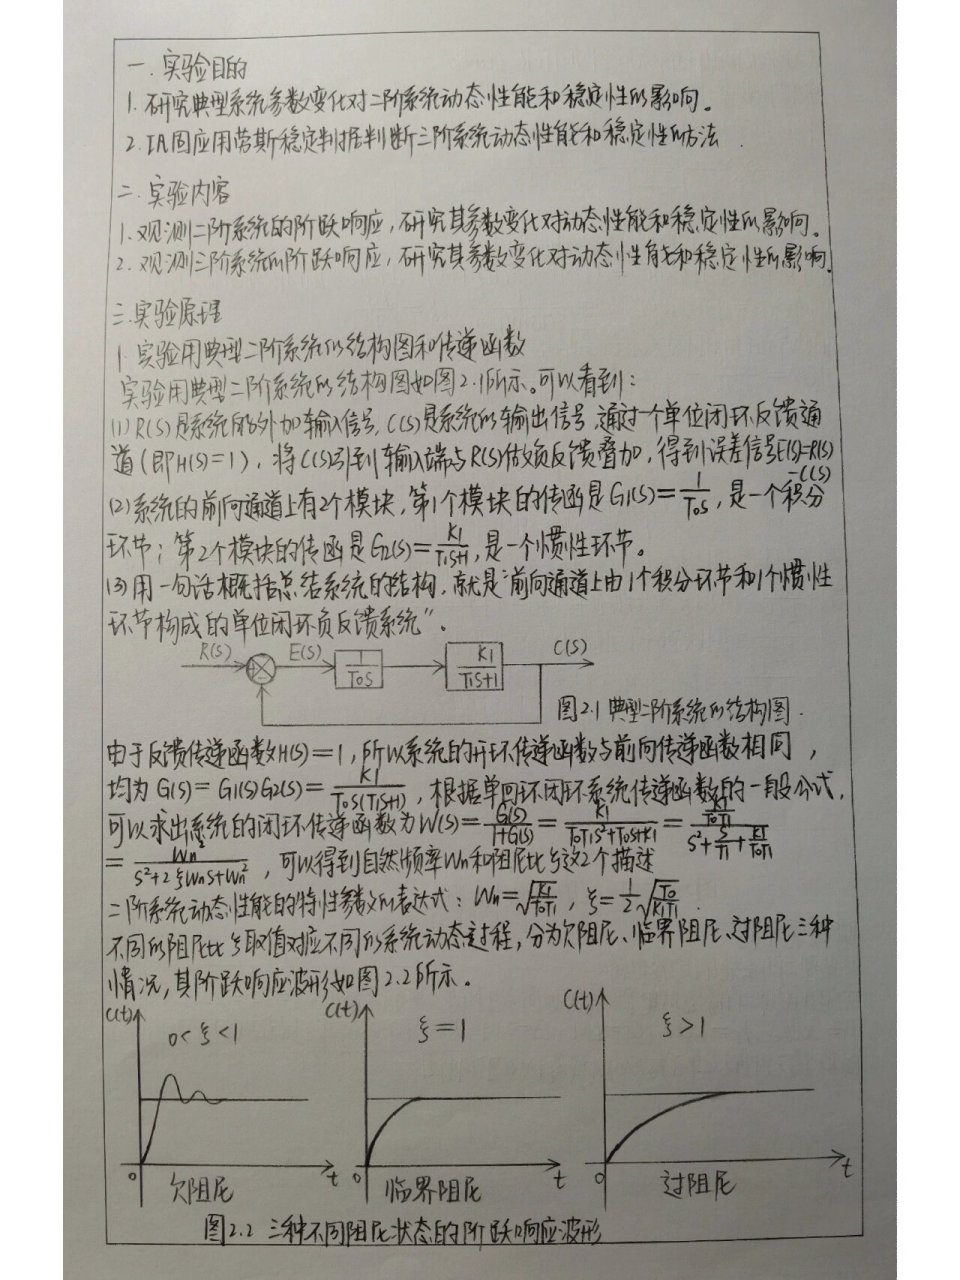 一.实验目的
1.研究典型系统参数变化对二阶系统动态性能和稳定性的影响。
2.IA固应用劳斯稳定判据判断三阶系统动态性能和稳定性的方法.
二.实验内容
1.观测二阶系统的阶跃响应,研究其参数变化对动态性能和稳定性的影响。
2.观测三阶系统的阶跃响应,研究其参数变化对动态性能和稳定性的影响.
三.实验原理
1.实验用典型二阶系统的结构图和传递函数
实验用典型二阶系统的结构图如图2.1所示。可以看到:
(1)R(S)是系统的外加输入信号,C(S)是系统的输出信号,通过一个单位闭环反馈通
道(即H(S)=1),将C(S)引到输入端与R(S)做负反馈叠加,得到误差信号E(S)=R(S)
-C(S)
(2)系统的前向通道上有2个模块,第1个模块的传函是G1(S)=1/T0S,是一个积分
环节;第2个模块的传函是G2(S)=K1/T1S+1,是一个惯性环节。
(3)用一句话概括总结系统的结构,就是"前向通道上由1个积分环节和1个惯性
环节构成的单位闭环负反馈系统"。
R(S) E(S) 1/T0S K1/T1S+1 C(S)
图2.1 典型二阶系统的结构图.
由于反馈传递函数H(S)=1,所以系统的开环传递函数与前向传递函数相同,
均为G(S)=G1(S)G2(S)=K1/T0S(T1S+1),根据单回环闭环系统传递函数的一般公式,
可以求出系统的闭环传递函数为W(S)=G(S)/1+G(S)=K1/T0T1S²+T0S+K1=K1/T0T1/S²+S/T1+K1/T0T1
=Wn²/S²+2ξWnS+Wn²,可以得到自然频率Wn和阻尼比ξ这2个描述
二阶系统动态性能的特性参数的表达式:Wn=√K1/T0T1,ξ=1/2√T0/K1T1.
不同的阻尼比ξ取值对应不同的系统动态过程,分为欠阻尼、临界阻尼、过阻尼三种
情况,其阶跃响应波形如图2.2所示。
C(t) 0<ξ<1 C(t) ξ=1 C(t) ξ>1
0 t 0 t 0 t
欠阻尼 临界阻尼 过阻尼
图2.2 三种不同阻尼状态的阶跃响应波形